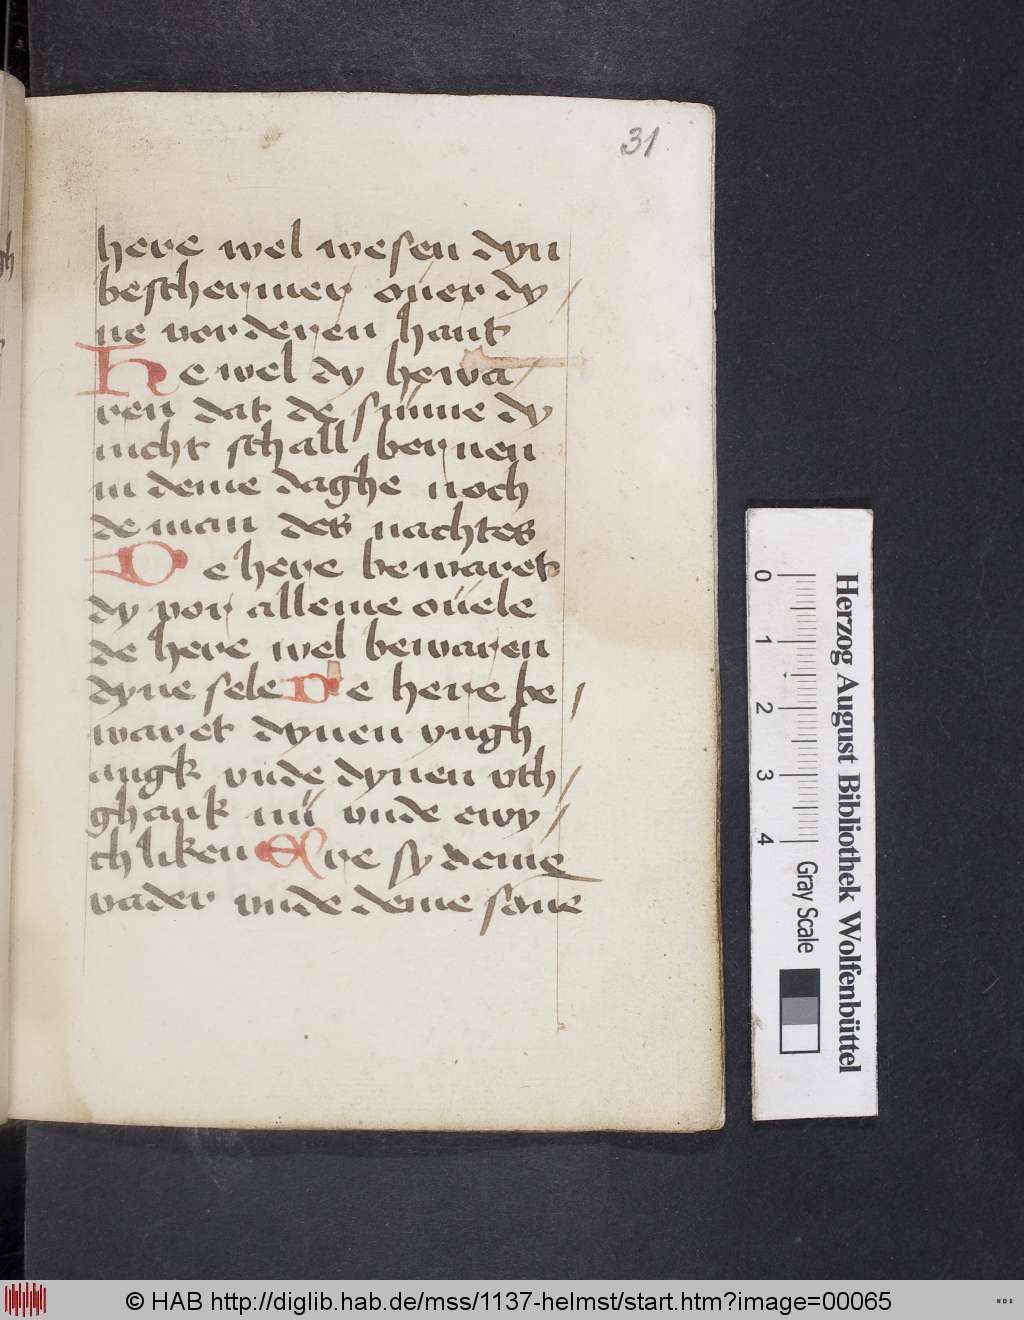 31
here wel wesen dyn
beschermer ouer dy /
ne vorderen hant
He wel dy bewa /
ren dat de sunne dy
nicht schall bernen
in deme daghe noch
de man des nachtes
De here bewaret
dy vor alleme ouele
de here wel bewaren
dyne sele De here be /
waret dynen yngh
angk vnde dynen vth /
ghank nu vnde ewy /
chliken Ere sy deme
vader vnde deme sone
0 1 2 3 4
Herzog August Bibliothek Wolfenbüttel
Gray Scale
© HAB http://diglib.hab.de/mss/1137-helmst/start.htm?image=00065